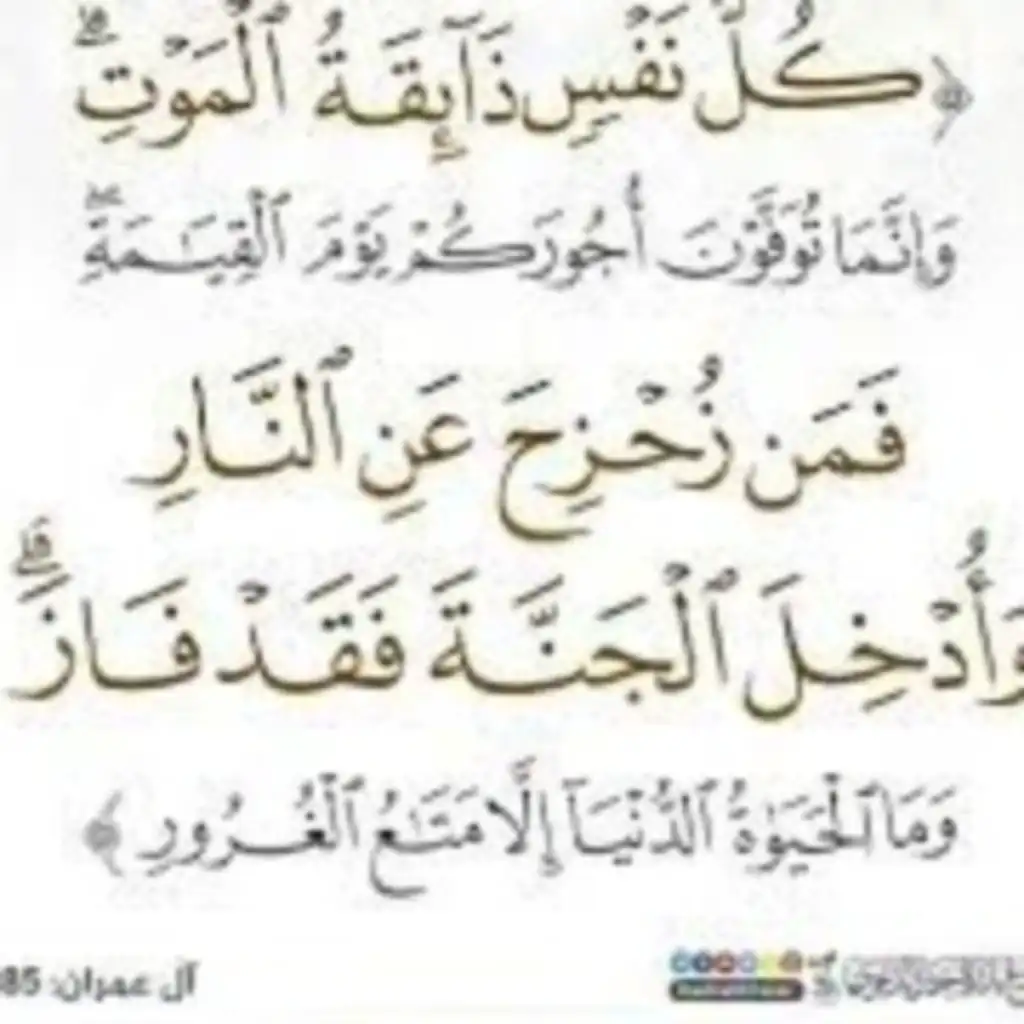 ﴿كُلُّ نَفْسٍ ذَآئِقَةُ ٱلْمَوْتِ ۗ
وَإِنَّمَا تُوَفَّوْنَ أُجُورَكُمْ يَوْمَ ٱلْقِيَـٰمَةِ ۖ
فَمَن زُحْزِحَ عَنِ ٱلنَّارِ
وَأُدْخِلَ ٱلْجَنَّةَ فَقَدْ فَازَ ۗ
وَمَا ٱلْحَيَوٰةُ ٱلدُّنْيَآ إِلَّا مَتَـٰعُ ٱلْغُرُورِ﴾
آل عمران: 85